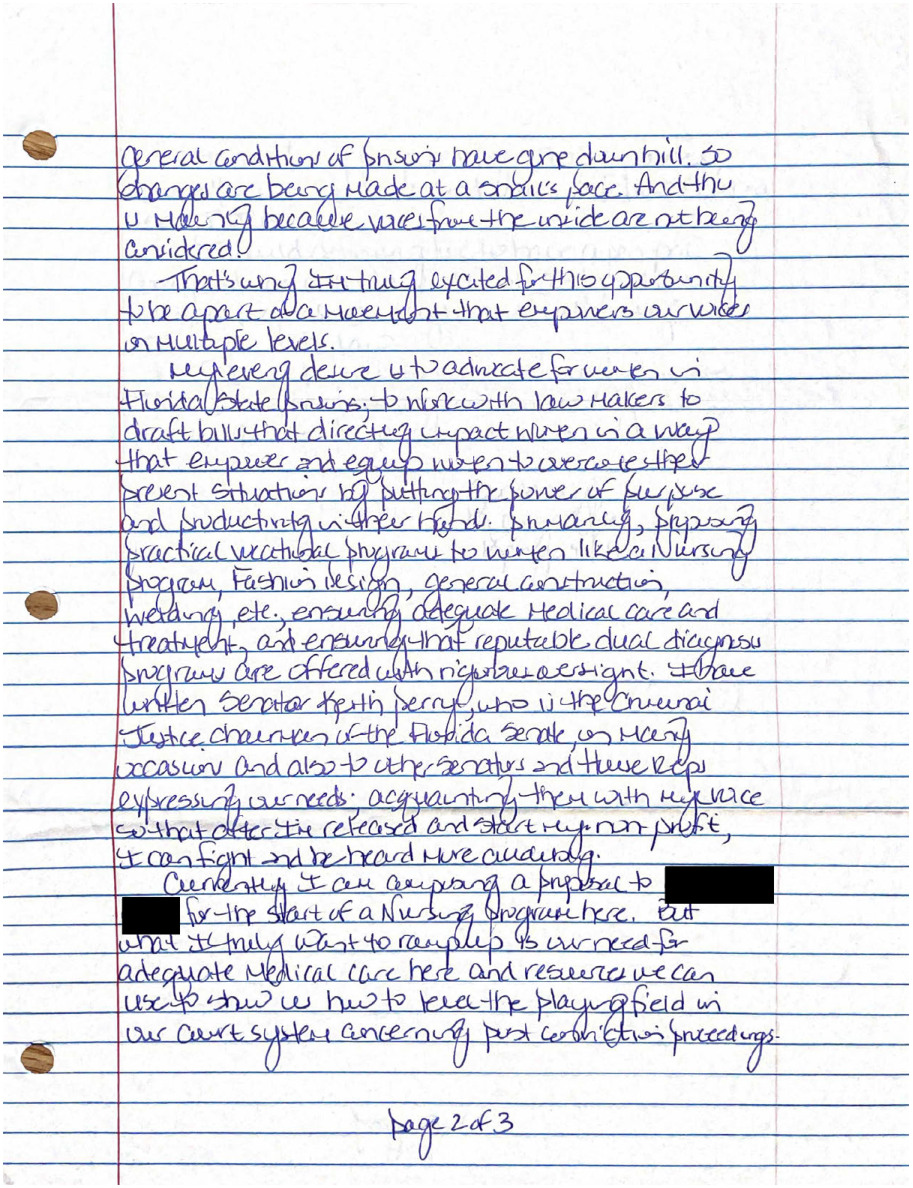 General conditions of prisons have gone downhill. So
changes are being made at a snail's pace. And this
is mainly because voices from the inside are not being
considered.
That's why I'm truly excited for this opportunity
to be apart of a movement that empowers our voices
on multiple levels.
My every desire is to advocate for women in
Florida State Prisons; to work with law makers to
draft bills that directly impact women in a way
that empower and equip women to overcome their
present situations by putting the power of purpose
and productivity in their hands. Primarily, proposing
practical vocational programs to women like a Nursing
program, Fashion Design, general construction,
welding, etc., ensuring adequate medical care and
treatment, and ensuring that reputable dual diagnosis
programs are offered with rigorous oversight. I have
written Senator Keith Perry, who is the Criminal
Justice chairman of the Florida Senate, on many
occasion and also to other senators and House Reps
expressing our needs; acquainting them with my voice
so that after I'm released and start my non profit,
I can fight and be heard more audibly.
Currently I am composing a proposal to
for the start of a Nursing program here. But
what I truly want to ramp up is our need for
adequate medical care here and resources we can
use to show us how to level the playing field in
our court system concerning post conviction proceedings.
page 2 of 3